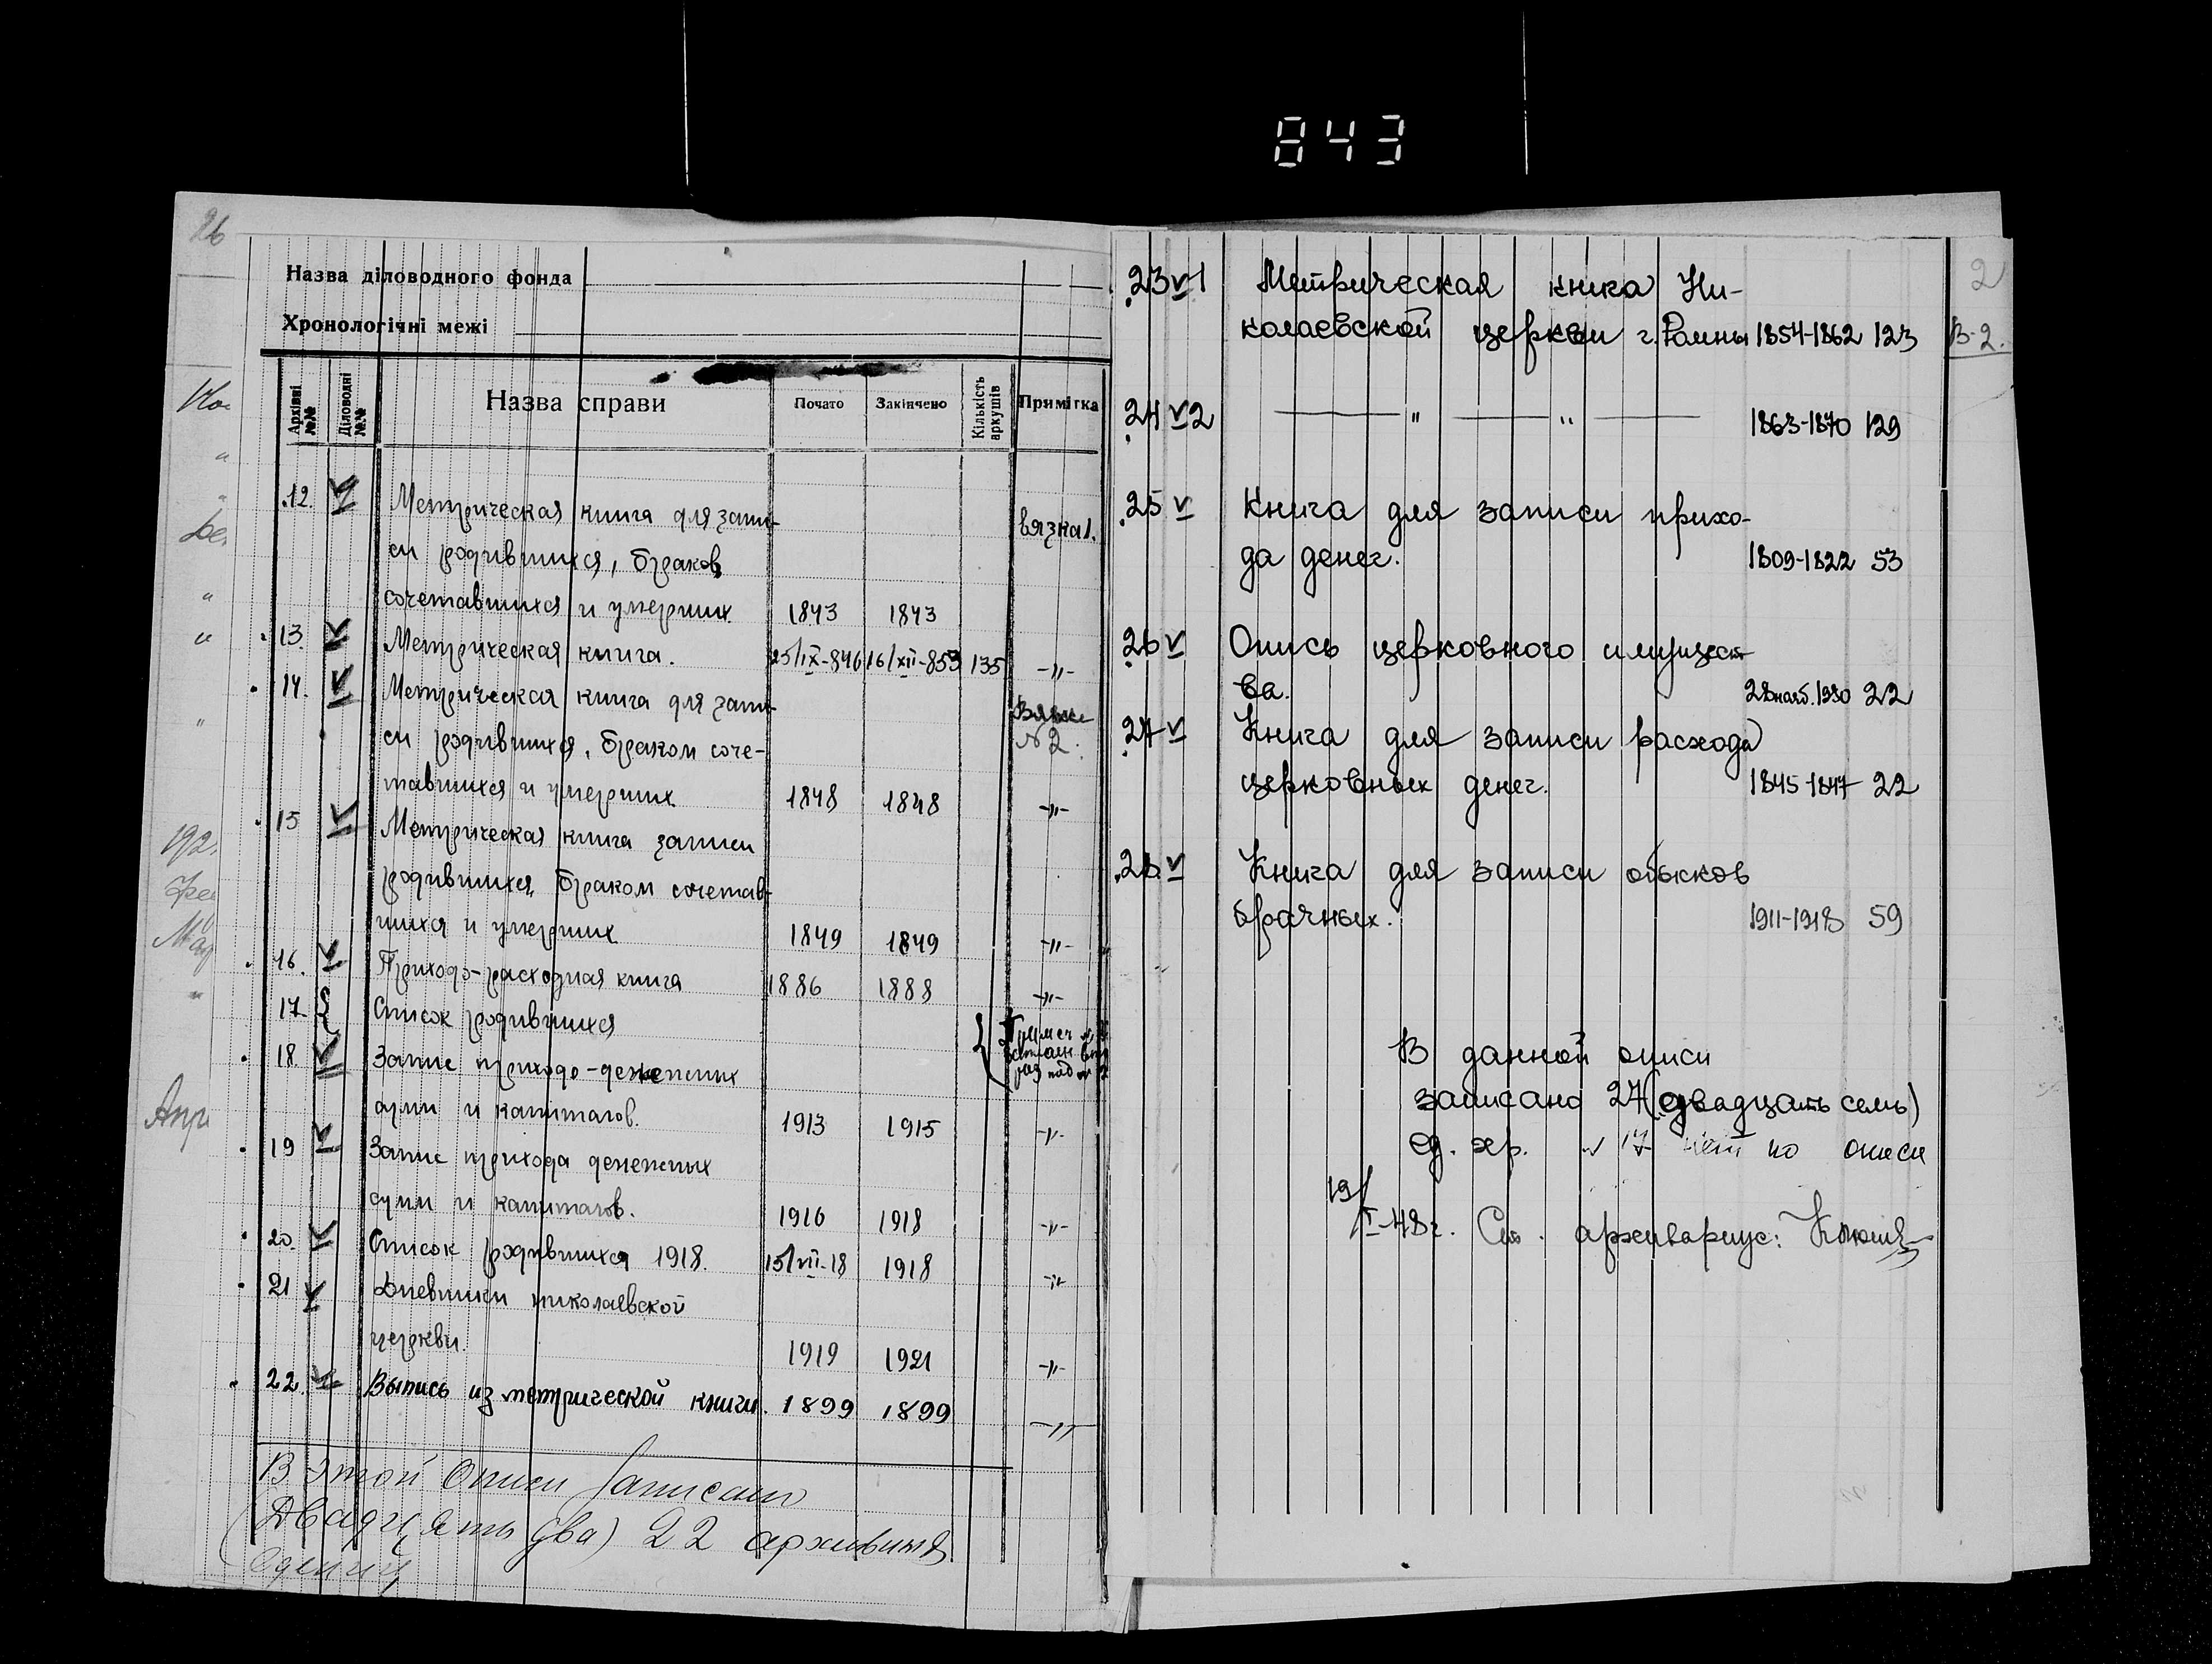 843
26
Назва діловодного фонда
Хронологічні межі
Архівні №№
Діловодні №№
Назва справи
Почато
Закінчено
Кількість аркушів
Примітка
12. Метрическая книга для запи-
вязка 1.
си родившихся, браков
сочетавшихся и умерших 1843 1843
13. Метрическая книга. 25/IX-846 16/XII-853 135 -"-
14. Метрическая книга для запи-
№ 2.
си родившихся, браком соче-
тавшихся и умерших 1848 1848 -"-
15 Метрическая книга записи
родившихся, браком сочетав-
шихся и умерших 1849 1849 -"-
16. Приходо-расходная книга 1886 1888 -"-
17 Список родившихся
18. Запис приходо-денежных
сумм и капиталов. 1913 1915 -"-
19 Запис прихода денежных
сумм и капиталов. 1916 1918 -"-
20. Список родившихся 1918. 15/VII-18 1918 -"-
21 Дневники николаевской
церкви. 1919 1921 -"-
22. Выпись из метрической книги. 1899 1899 -"-
В этой описи записано
(Двадцать два) 22 архивных
единиц
2
23 v 1 Метрическая книга Ни-
колаевской церкви г. Ромны 1854-1862 123 В-2.
24 v 2 — " — " — 1863-1870 129
25 v Книга для записи прихо-
да денег. 1809-1822 53
26 v Опись церковного имущест-
ва. 22
27 v Книга для записи расхода
церковных денег. 1845-1847 22
28 v Книга для записи обысков
брачных. 1911-1918 59
В данной описи
записано 27 (двадцать семь)
ед. хр. № 17 нет по описи
19/I-48г. Ст. архивариус: